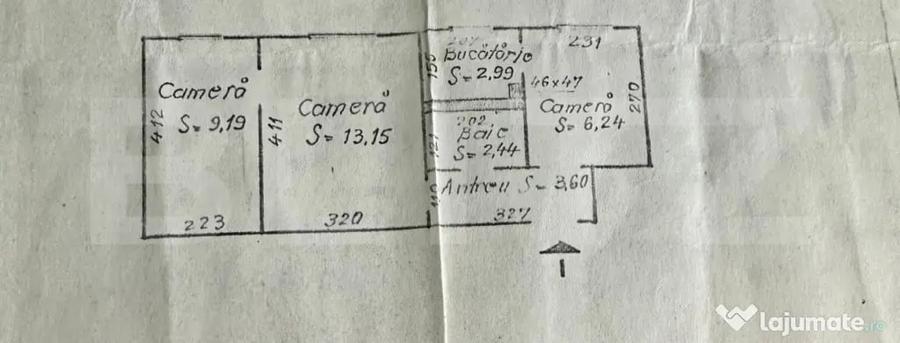 Cameră
S= 9,19
412
223
Cameră
S= 13,15
411
320
207
Bucătărie
S= 2,99
150
46x47
231
Cameră
S= 6,24
270
202
Baie
S= 2,44
121
Antreu S= 3,60
110
327
I
lajumate.ro